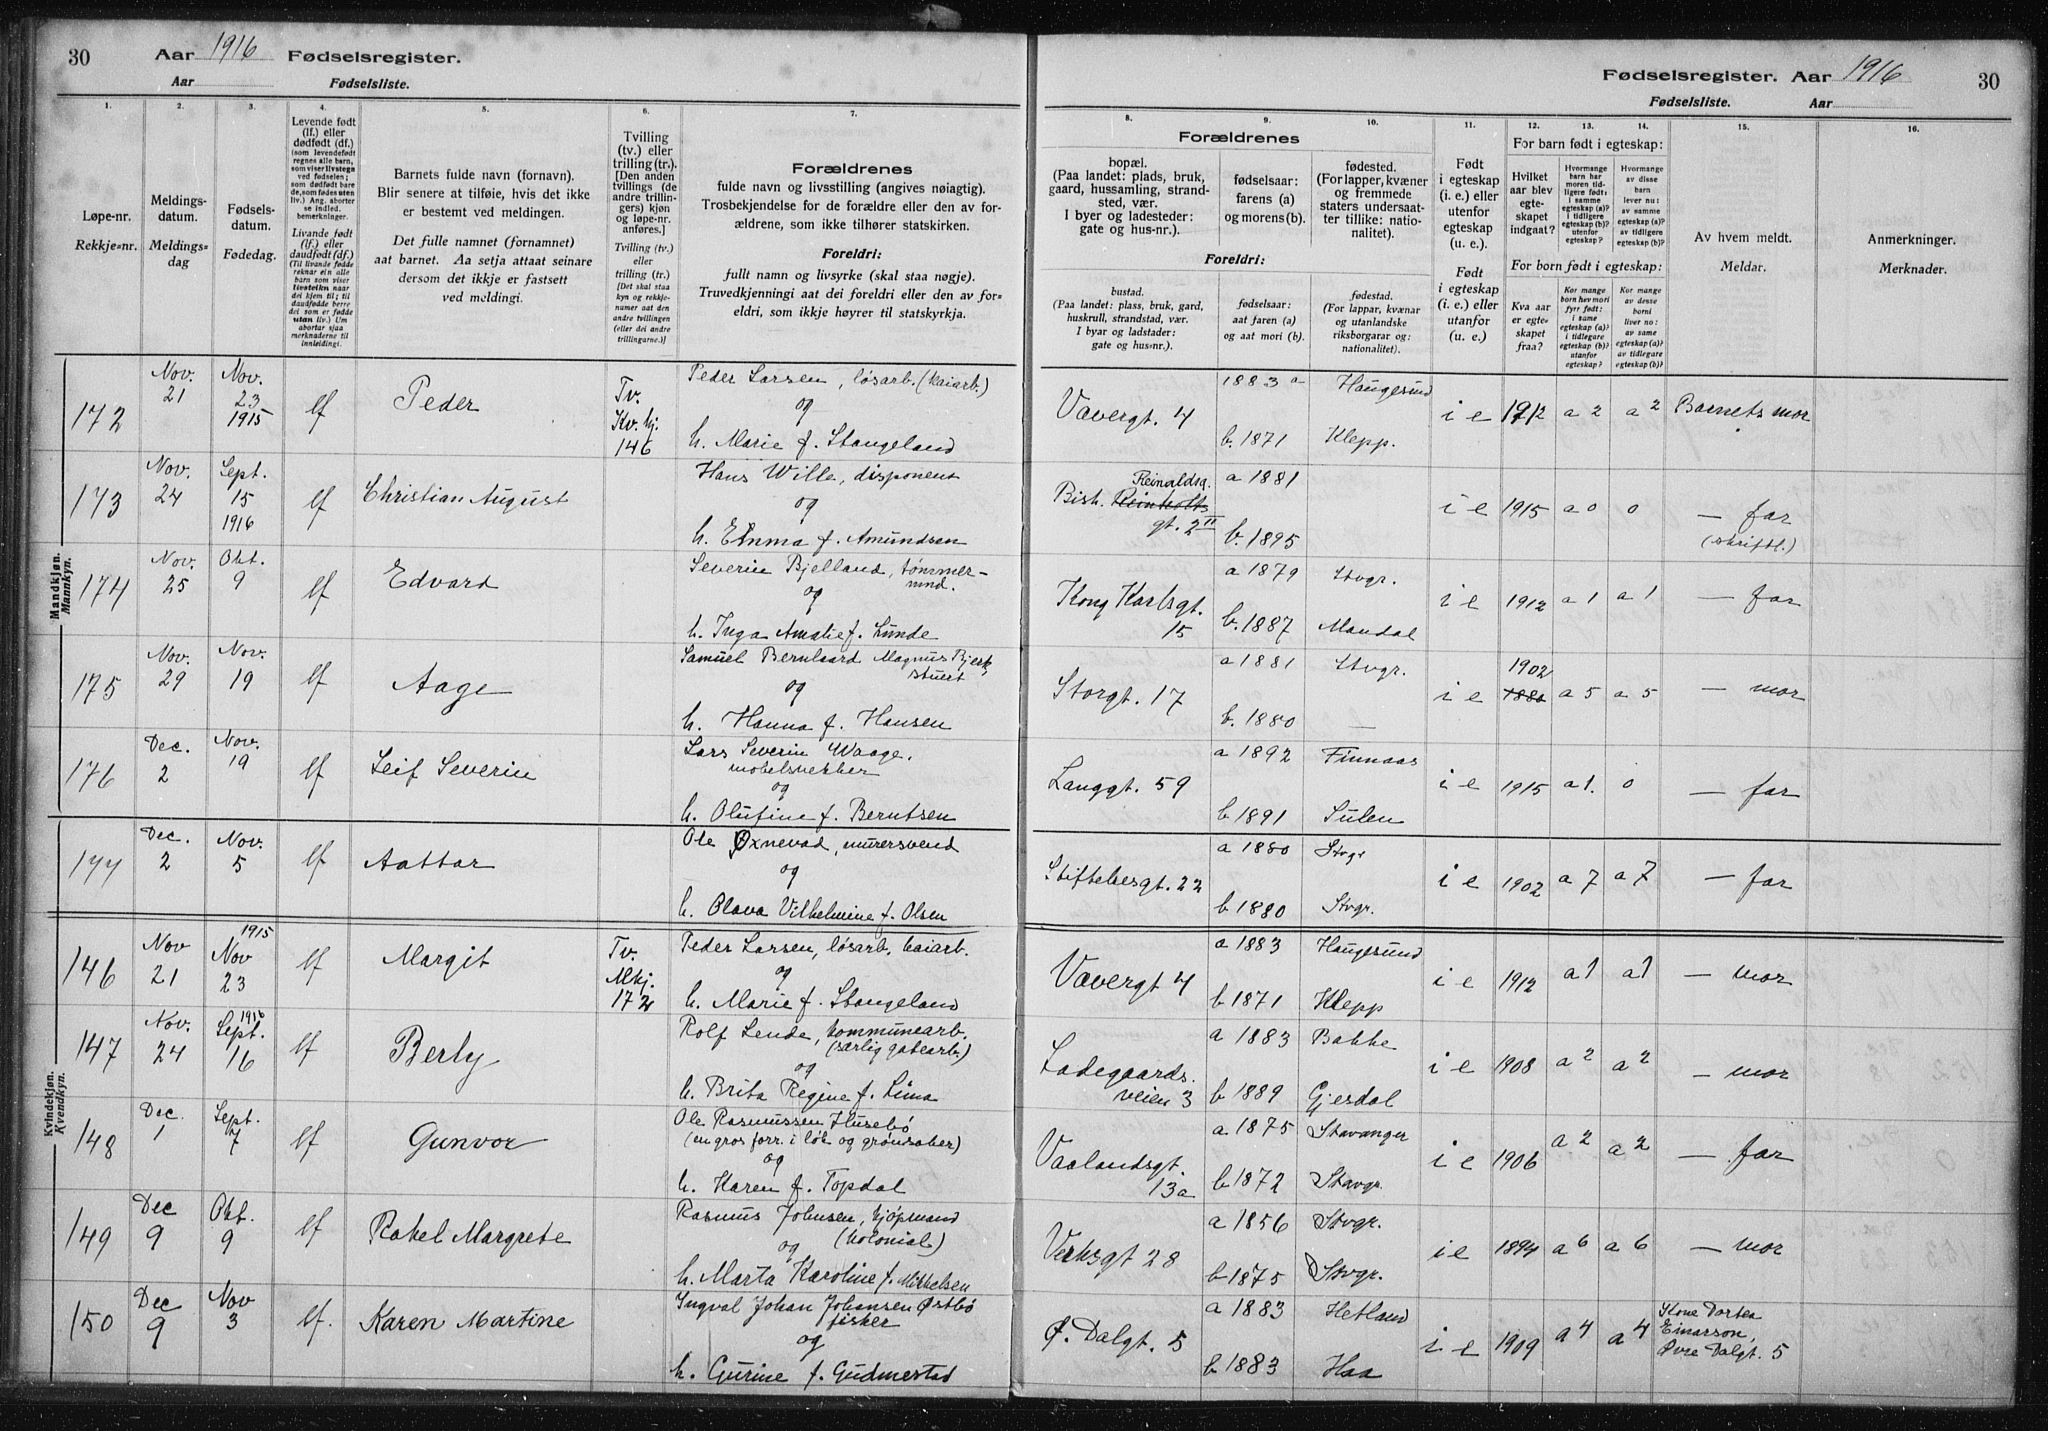 30
Aar 1916 Fødselsregister.
Aar Fødselsliste.
Fødselsregister. Aar 1916
30
Fødselsliste. Aar
1.
Løpe-nr.
Rekkje-nr.
2.
Meldings-
datum.
Meldings-
dag
3.
Fødsels-
datum.
Fødedag.
4.
Levende født
(lf.) eller
dødfødt (df.)
(som levendefødt
regnes alle barn,
som viser livstegn
ved fødselen;
som dødfødt bare
de, som fødes uten
liv.) Ang. aborter
se indled.
bemerkninger.
Livande fødd
(lf.) eller
daudfødd (df.)
(Til livande fødde
reknar ein alle
born som viser
livsteikn naar
dei kjem til; til
daudfødde berre
dei som er fødde
utan liv.) Um
abortar sjaa
merknaderne til
innleidingi.
5.
Barnets fulde navn (fornavn).
Blir senere at tilføie, hvis det ikke
er bestemt ved meldingen.
Det fulle namnet (fornamnet)
aat barnet. Aa setja attaat seinare
dersom det ikkje er fastsett
ved meldingi.
6.
Tvilling
(tv.) eller
trilling (tr.).
[Den anden
tvillings (de
andre trillin-
gers) kjøn
og løpe-nr.
anføres.]
Tvilling (tv.)
eller
trilling (tr.)
[Det skal staa
kyn og rekkje-
numer aat den
andre tvillingen
(eller dei andre
trillingarne.)]
7.
Forældrenes
fulde navn og livsstilling (angives nøiagtig).
Trosbekjendelse for de forældre eller den av for-
ældrene, som ikke tilhører statskirken.
Foreldri:
fullt namn og livsyrke (skal staa nøgje).
Truvedkjenningi aat dei foreldri eller den av for-
eldri, som ikkje høyrer til statskyrkja.
Forældrenes
8.
bopæl.
(Paa landet: plads, bruk,
gaard, hussamling, strand-
sted, vær.
I byer og ladesteder:
gate og hus-nr.).
9.
fødselsaar:
farens (a)
og morens (b).
10.
fødested.
(For lapper, kvæner
og fremmede
staters undersaat-
ter tillike: natio-
nalitet).
Foreldri:
bustad.
(Paa landet: plass, bruk, gard,
huskrull, strandstad, vær.
I byar og ladstader:
gate og hus-nr.).
fødselsaar:
aat faren (a)
og aat mori (b).
fødestad.
(For lappar, kvænar
og utanlandske
riksborgarar og:
nationalitet).
11.
Født
i egteskap
(i. e.) eller
utenfor
egteskap
(u. e.).
Født
i egteskap
(i. e.) eller
utanfor
(u. e.).
12. 13. 14.
For barn født i egteskap:
Hvilket
aar blev
egte-
skapet
indgaat?
Hvormange
barn har
moren tid-
ligere født:
i samme
egteskap (a)?
i tidligere
egteskap (b)?
utenfor
egteskap?
Hvormange
av disse
barn
lever nu:
av samme
egteskap (a)?
av tidligere
egteskap (b)?
For born født i egteskap:
Kva aar
er egte-
skapet
fraa?
Kor mange
born hev mori
fyrr født:
i same
egteskap (a)?
i tidlegare
egteskap (b)?
utanfor
egteskap?
Kor mange
av desse
borni
liver no:
av same
egteskap (a)?
av tidlegare
egteskap (b)?
15.
Av hvem meldt.
Meldar.
16.
Anmerkninger.
Merknader.
Mandkjøn.
Mannkyn.
172 Nov. 21 Nov. 23 1915 lf Peder Tv. Kv. kj. 146 Peder Larsen, løsarb. (kaiarb.)
og
h. Marie f. Stangeland
Vævergt. 4 1883 a Haugesund b. 1871 Klepp. i e 1912 a 2 a 2 Barnets mor
173 Nov. 24 Sept. 15 1916 lf Christian August Hans Wille, disponent
og
h. Emma f. Amundsen
Bisk. Reinaldsg. Reinholts gt. 2 II a 1881 b. 1895 i e 1915 a 0 0 — far
(skriftl.)
174 Nov. 25 Okt. 9 lf Edvard Severin Bjelland, tømmer-
mnd.
og
h. Inga Amalie f. Lunde
Kong Karlsgt. 15 a 1879 Stvgr. b. 1887 Mandal i e 1912 a 1 a 1 — far
175 Nov. 29 Nov. 19 lf Aage Samuel Bernhaard Magnus Bjerk,
stuert
og
h. Hanna f. Hansen
Storgt. 17 a 1881 Stvgr. b. 1880 — i e 1902 1880 a 5 a 5 — mor
176 Dec. 2 Nov. 19 lf Leif Severin Lars Severin Waage.
møbelsnekker
og
h. Olufine f. Berntsen
Langgt. 59 a 1892 Finnaas b 1891 Sulen i e 1915 a 1. 0 — far
177 Dec. 2 Nov. 5 lf Aattar Ole Øxnevad, murersvend
og
h. Olava Vilhelmine f. Olsen
Stiftelsesgt. 22 a 1880 Stvgr b 1880 Stvgr. i e 1902 a 7 a 7 — far
Kvindekjøn.
Kvendkyn.
146 Nov 21 1915 Nov 23 lf Margit Tv. Mkj. 172 Peder Larsen, løsarb. kaiarb.
og
h. Marie f. Stangeland
Vævergt 4 a 1883 Haugesund b 1871 Klepp i e 1912 a 1 a 1 — mor
147 Nov. 24 1916 Sept. 16 lf Berly Rolf Lende, kommunearb.
(særlig gatearb.)
og
h. Brita Regine f. Lima
Ladegaards.
veien 3 a 1883 Bakke b 1889 Gjesdal i e 1908 a 2 a 2 — mor
148 Dec. 1 Sept. 7 lf Gunvor Ole Rasmussen Husebø
(en gros forr. i løk og grønsaker)
og
h. Karen f. Topdal
Vaalandsgt.
13a a 1875 Stavanger b 1872 Stavgr. i e 1906 a 2 a 2 — far
149 Dec 9 Okt. 9 lf Rakel Margrete Rasmus Johnsen, kjøpmand
(kolonial)
og
h. Marta Karoline f. Mikkelsen
Verksgt 28 a 1856 Stvgr. b 1875 Stvgr. i e 1894 a 6 a 6 — mor
150 Dec 9 Nov 3 lf. Karen Martine Ingval Johan Johansen Østbø
fisker
og
h. Gurine f. Gudmestad
Ø. Dalgt. 5 a 1883 Hetland b 1883 Haa i e 1909 a 4 a 4 Kone Dortea
Einarson,
Øvre Dalgt. 5